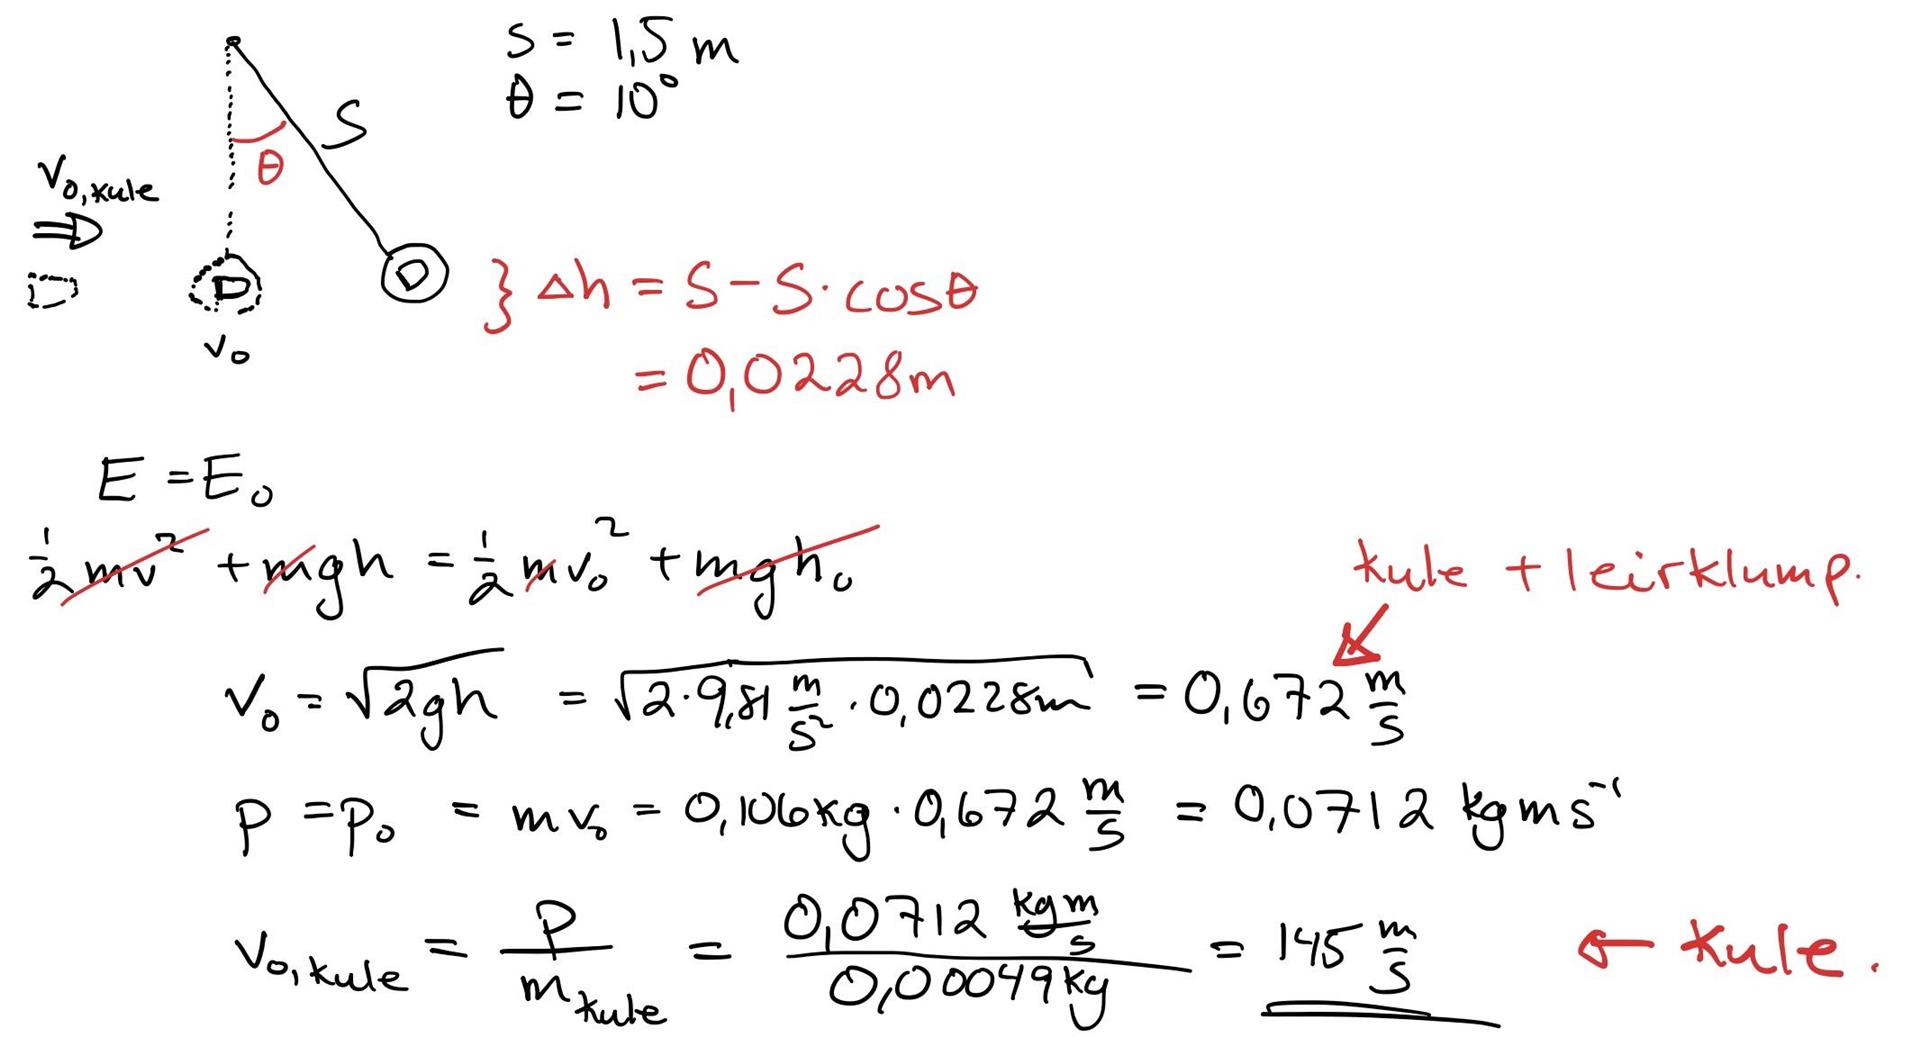 S = 1,5 m
θ = 10°
S
θ
V₀,kule
V₀
} Δh = S - S · cosθ
= 0,0228m
E = E₀
½ mv² + mgh = ½ mv₀² + mgh₀
kule + leirklump.
V₀ = √2gh = √2·9,81 m/s² · 0,0228m = 0,672 m/s
p = p₀ = mv₀ = 0,106kg · 0,672 m/s = 0,0712 kgms⁻¹
V₀,kule = p/m kule = 0,0712 kgm/s / 0,00049kg = 145 m/s ← kule.